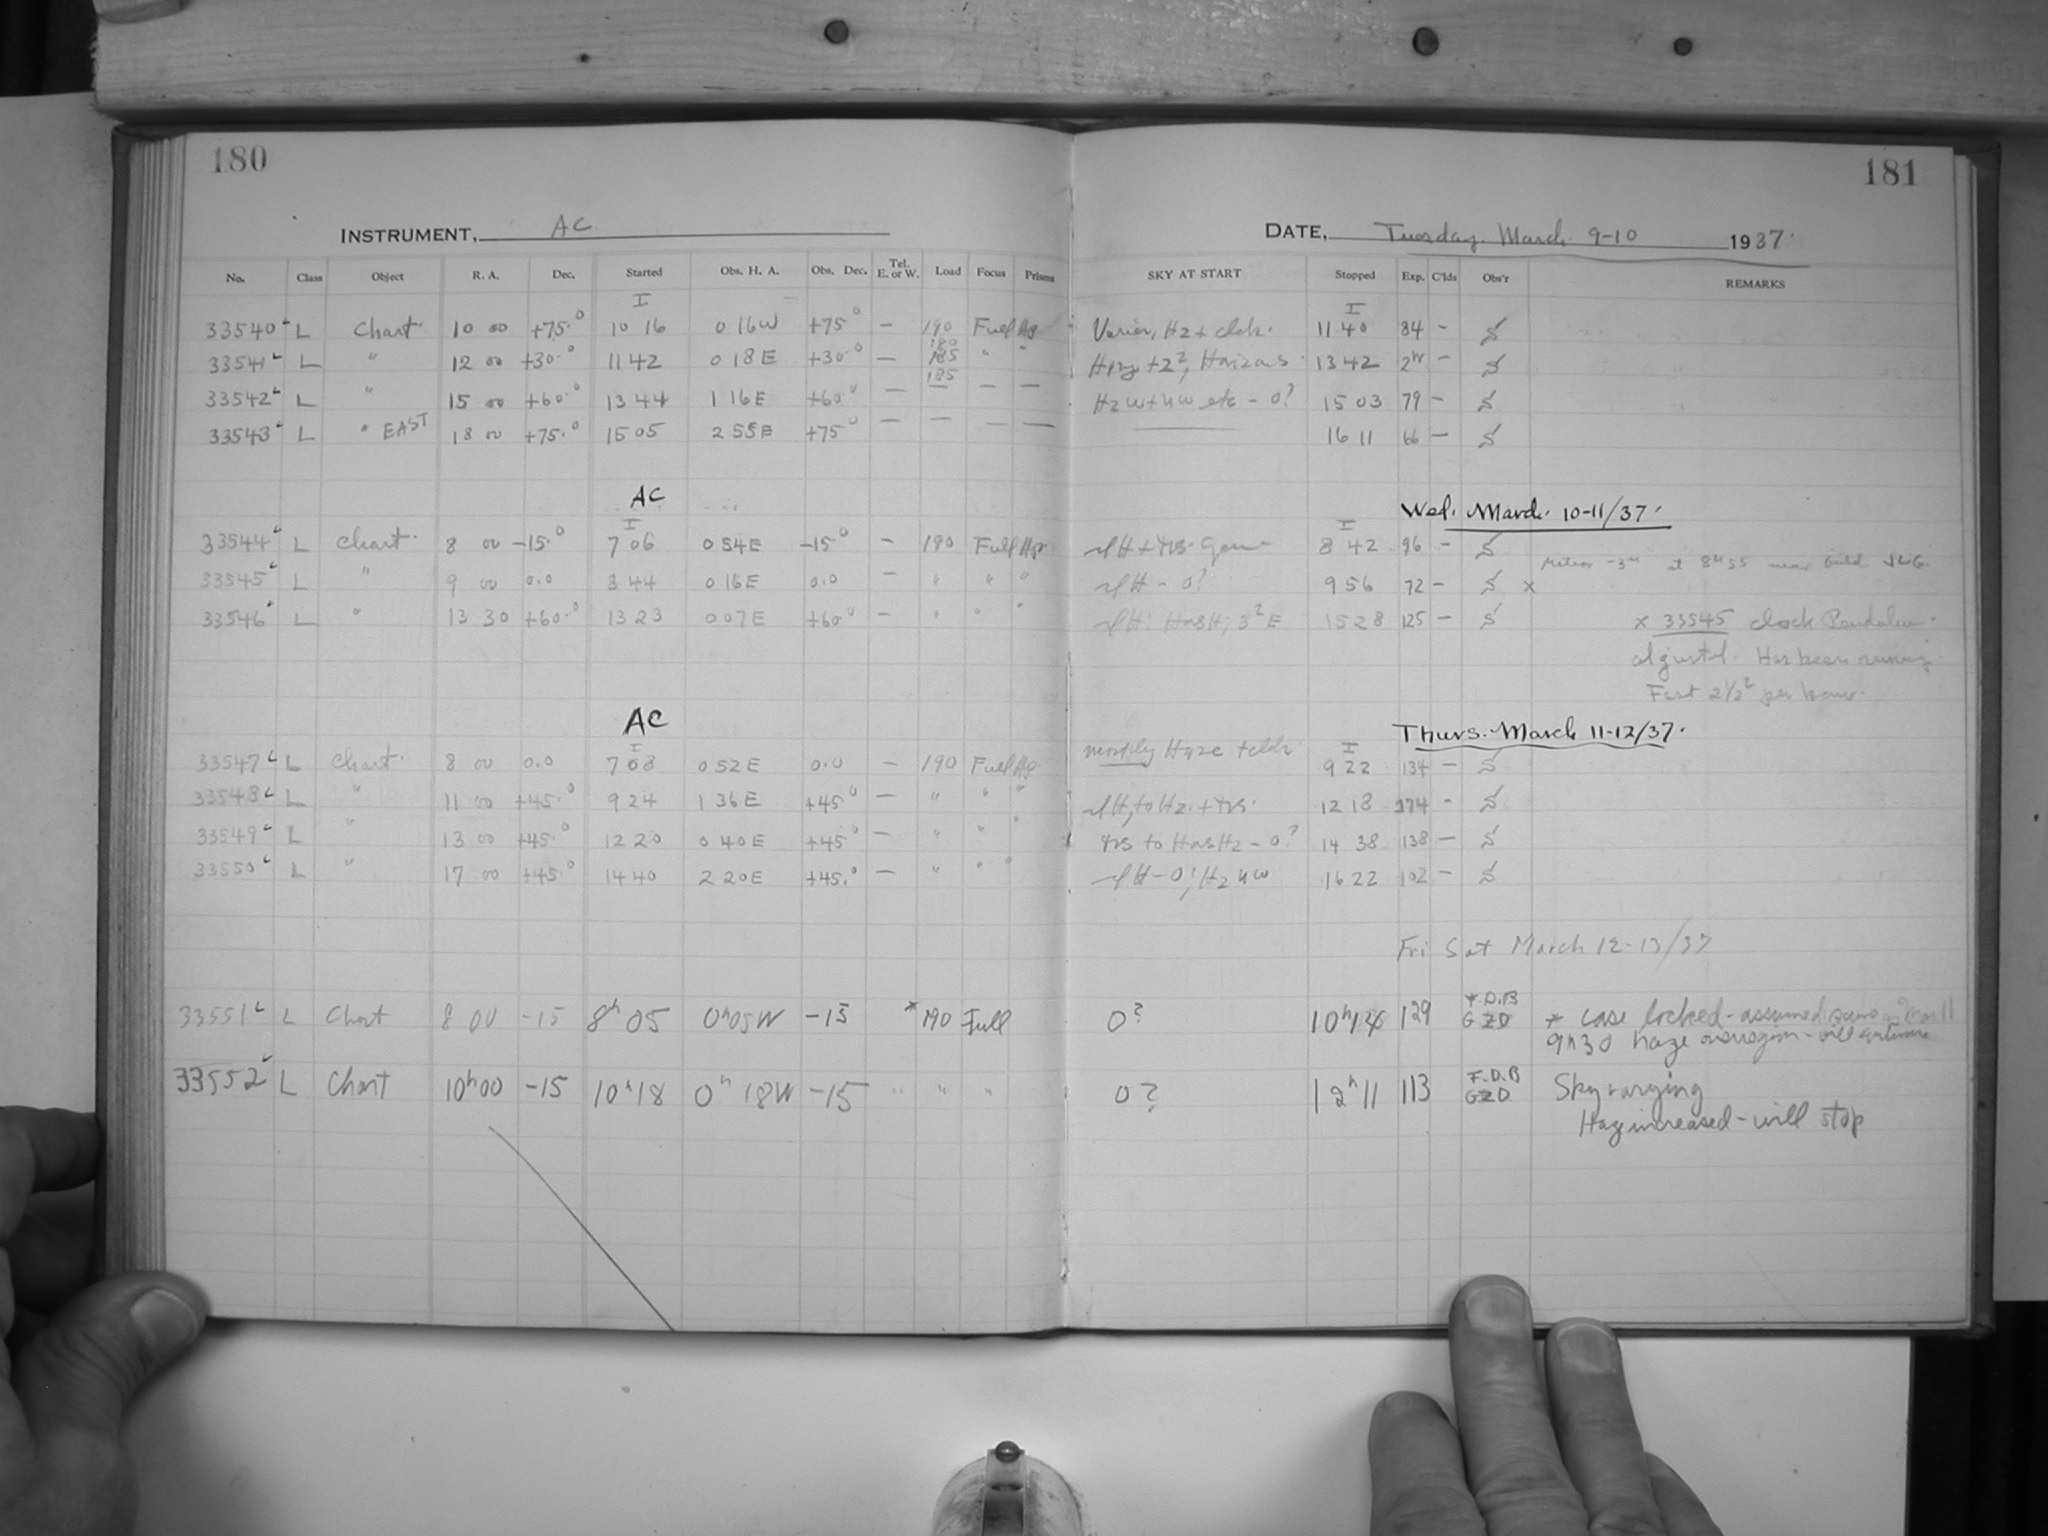 180
INSTRUMENT, AC
No. Class Object R. A. Dec. Started Obs. H. A. Obs. Dec. Tel. E. or W. Load Focus Prisms
I
33540 L Chart 10 00 +75.° 10 16 0 16W +75° — 190 Full
180
33541 L " 12 00 +30.° 11 42 0 18E +30.° — 185 " "
185
33542 L " 15 00 +60.° 13 44 1 16E +60.° — — — —
33543 L " EAST 18 00 +75.° 15 05 2 55E +75° — — — —
AC
I
33544 L Chart 8 00 -15.° 7 06 0 54E -15.° — 190 Full
33545 L " 9 00 0.0 8 44 0 16E 0.0 — " " "
33546 L " 13 30 +60.° 13 23 0 07E +60° — " " "
AC
I
33547 L Chart 8 00 0.0 7 08 0 52E 0.0 — 190 Full
33548 L " 11 00 +45.° 9 24 1 36E +45° — " " "
33549 L " 13 00 +45.° 12 20 0 40E +45° — " " "
33550 L " 17 00 +45.° 14 40 2 20E +45.° — " " "
33551 L Chart 8 00 -15 8h 05 0h05W -15 * 190 Full
33552 L Chart 10h00 -15 10h18 0h 18W -15 " " "
181
DATE, Tuesday March 9-10 1937.
SKY AT START Stopped Exp. C'lds Obs'r REMARKS
I
Hz + 11 40 84 -
13 42 2h -
Hz W + NW etc - 0? 15 03 79 -
16 11 66 —
Wed. March 10-11/37.
I
8 42 96 -
at 8h55 near
H - 0? 9 56 72 - x
15 28 125 - x 33545 clock Pendulum
adjusted. Has been running
Fast 2½ per hour.
Thurs. March 11-12/37.
mostly Haze + I
9 22 134 -
to Hz. + 12 18 174 -
to Hz - 0? 14 38 138 —
Hz NW 16 22 102 -
Fri Sat March 12-13/37
0? 10h 129 F.D.B GZD * case locked - assumed same as Mar 11
9h30 haze over region - will continue
0? 12h11 113 F.D.B GZD Sky varying
Haze increased - will stop